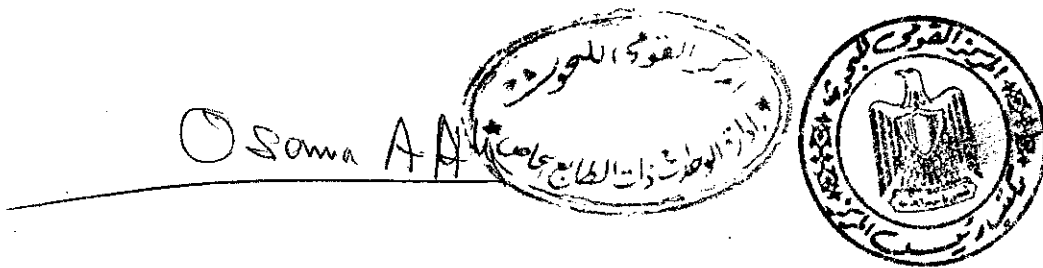 Osama A. Ali
المركز القومى للبحوث
إدارة الوحدات ذات الطابع الخاص
المركز القومى للبحوث
مكتب رئيس المركز